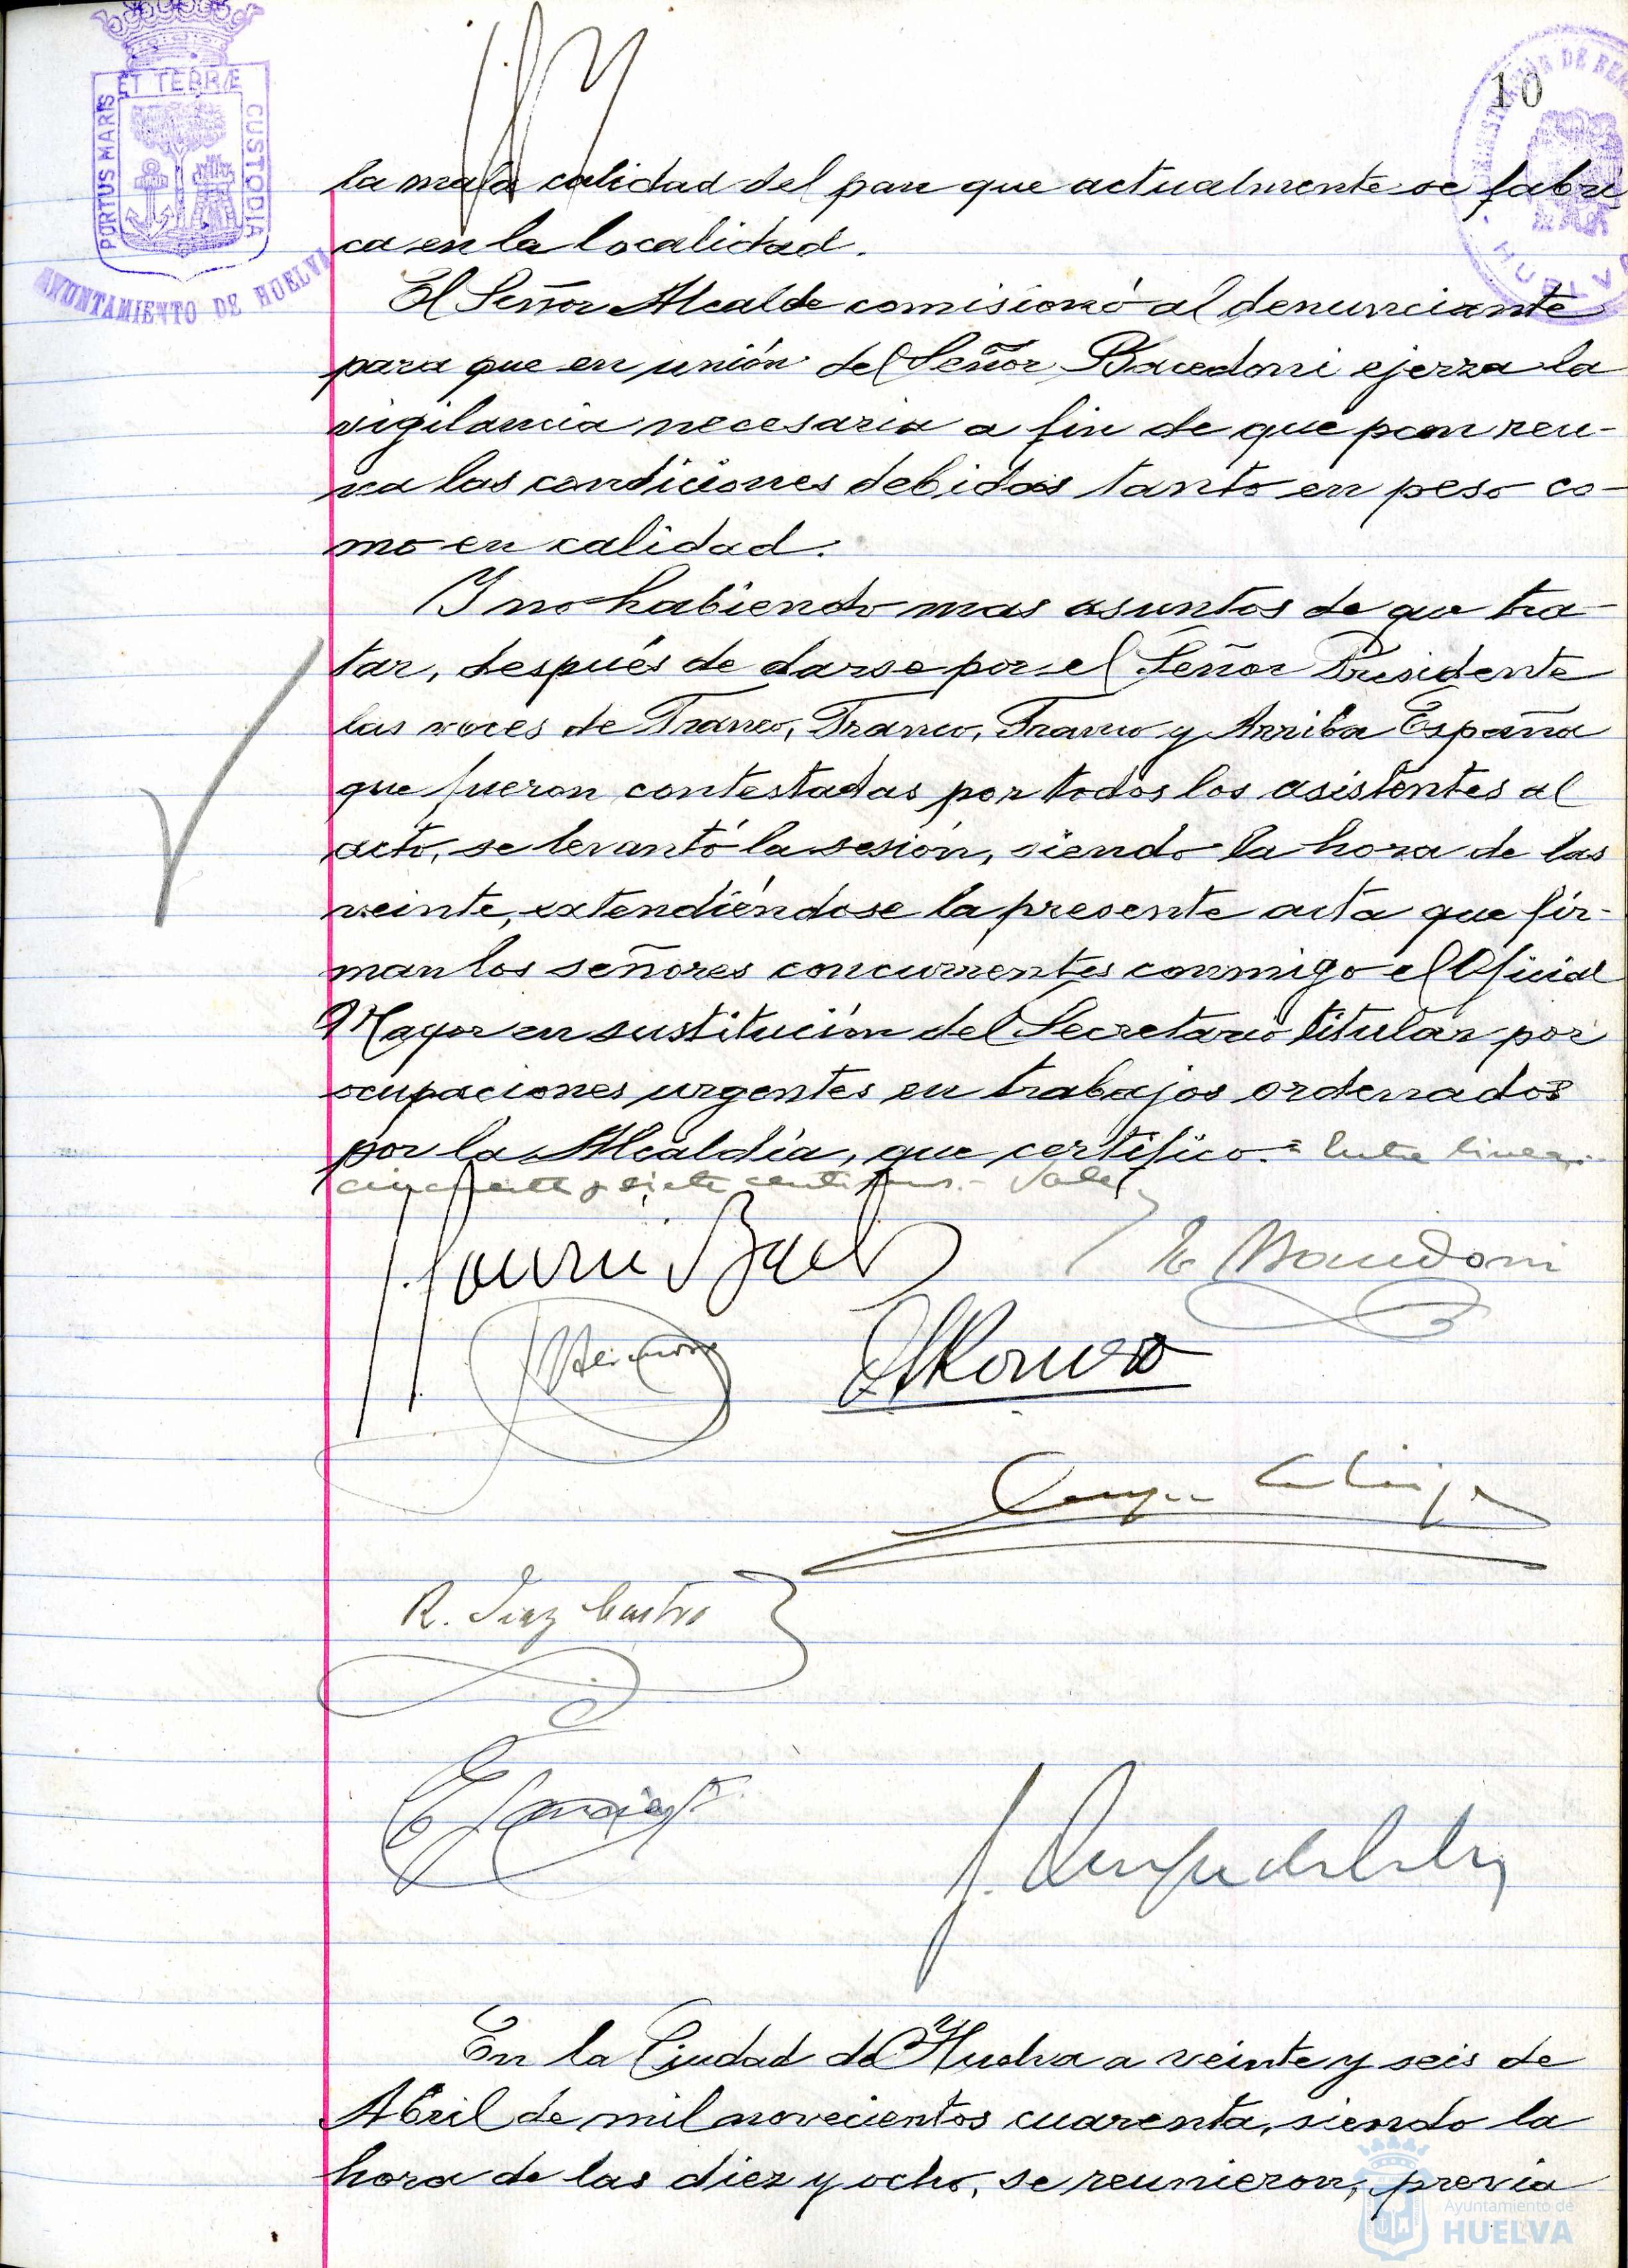 10
PORTUS MARIS ET TERRÆ CUSTODIA
AYUNTAMIENTO DE HUELVA
HUELVA
la mala calidad del pan que actualmente se fabri
ca en la localidad.
El Señor Alcalde comisionó al denunciante
para que en unión del Señor Bacedoni ejerza la
vigilancia necesaria a fin de que pan reu-
na las condiciones debidas tanto en peso co-
mo en calidad.
Y no habiendo mas asuntos de que tra-
tar, después de darse por el Señor Presidente
las voces de Franco, Franco, Franco y Arriba España
que fueron contestadas por todos los asistentes al
acto, se levantó la sesión, siendo la hora de las
veinte, extendiéndose la presente acta que fir-
man los señores concurrentes conmigo el Oficial
Mayor en sustitución del Secretario titular por
ocupaciones urgentes en trabajos ordenados
por la Alcaldía, que certifico.= Entre lineas.-
cincuenta y siete centimos.- Vale
R. Diaz Castro
En la Ciudad de Huelva a veinte y seis de
Abril de mil novecientos cuarenta, siendo la
hora de las diez y ocho, se reunieron, previa
Ayuntamiento de
HUELVA